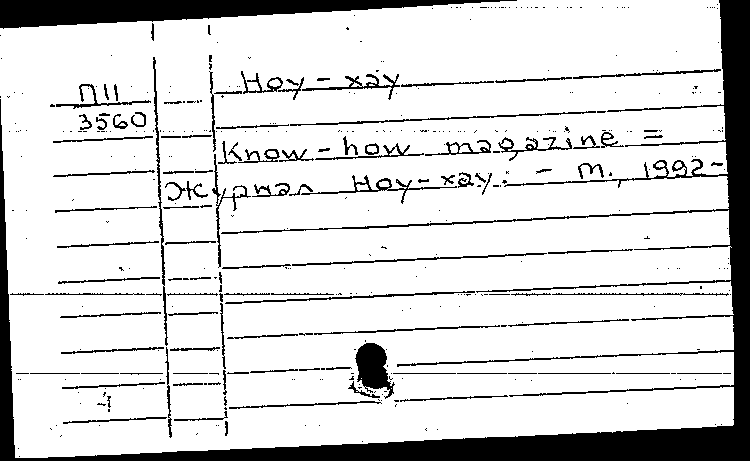 Ноу-хау
П11
3560
Know-how magazine =
Журнал Ноу-хау. - М., 1992-
4